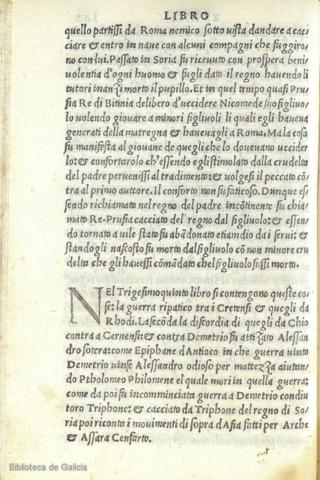 LIBRO
quello partissi da Roma nemico sotto vista dandare a cac-
ciare & entro in nave con alcuni compagni che fuggiro-
no con lui. Passato in Soria fu riceuuto con prospera beni
uolentia d'ogni huomo & fugli dato il regno hauendo li
tutori inanzi morto il pupello. Et in quel tempo quasi Pru-
sia Re di Bitinia delibero d'uccidere Nicomede suo figliuo-
lo uolendo giouare a minori figliuoli li quali egli haueua
generati della matregna & haueuagli a Roma. Mala cosa
fu manifesta al giouane de quegli che lo doueuano uccider
lo: & confortarolo ch'essendo egli stimolato dalla crudelta
del padre peruenissi al tradimento: & uolgesi il peccato cō
tra al primo auttore. Il conforto non fu faticoso. Dunque es
sendo richiamato nel regno del padre incōtinente fu chia
mato Re. Prusia cacciato del regno dal figliuolo: & essen
do tornato a uile stato fu abādonato etiamdio da i serui: &
standogli nascosto fu morto dal figliuolo cō non minore cru
delta che gli hauessi cōmādato chel figliuolo fussi morto.
NEl Trigesimoquinto libro si contengono queste co-
se: la guerra ripatico tra i Cretensi & quegli da
Rhodi. La secōda la discordia di quegli da Chio
contra a Cernensi: & contra Demetrio fu attizato Alessan
dro sotera: come Epiphane d'Antioco in che guerra uinto
Demetrio uinse Alessandro odioso per mattezza aiutan-
do Ptholomeo Philomene el quale mori in quella guerra:
come da poi fu incomminciata guerra a Demetrio condui
toro Triphone: & cacciato da Triphone del regno di So-
ria poi riconto i mouimenti di sopra d'Asia fatti per Arche
& Assara Censarto.
cut
Biblioteca de Galicia